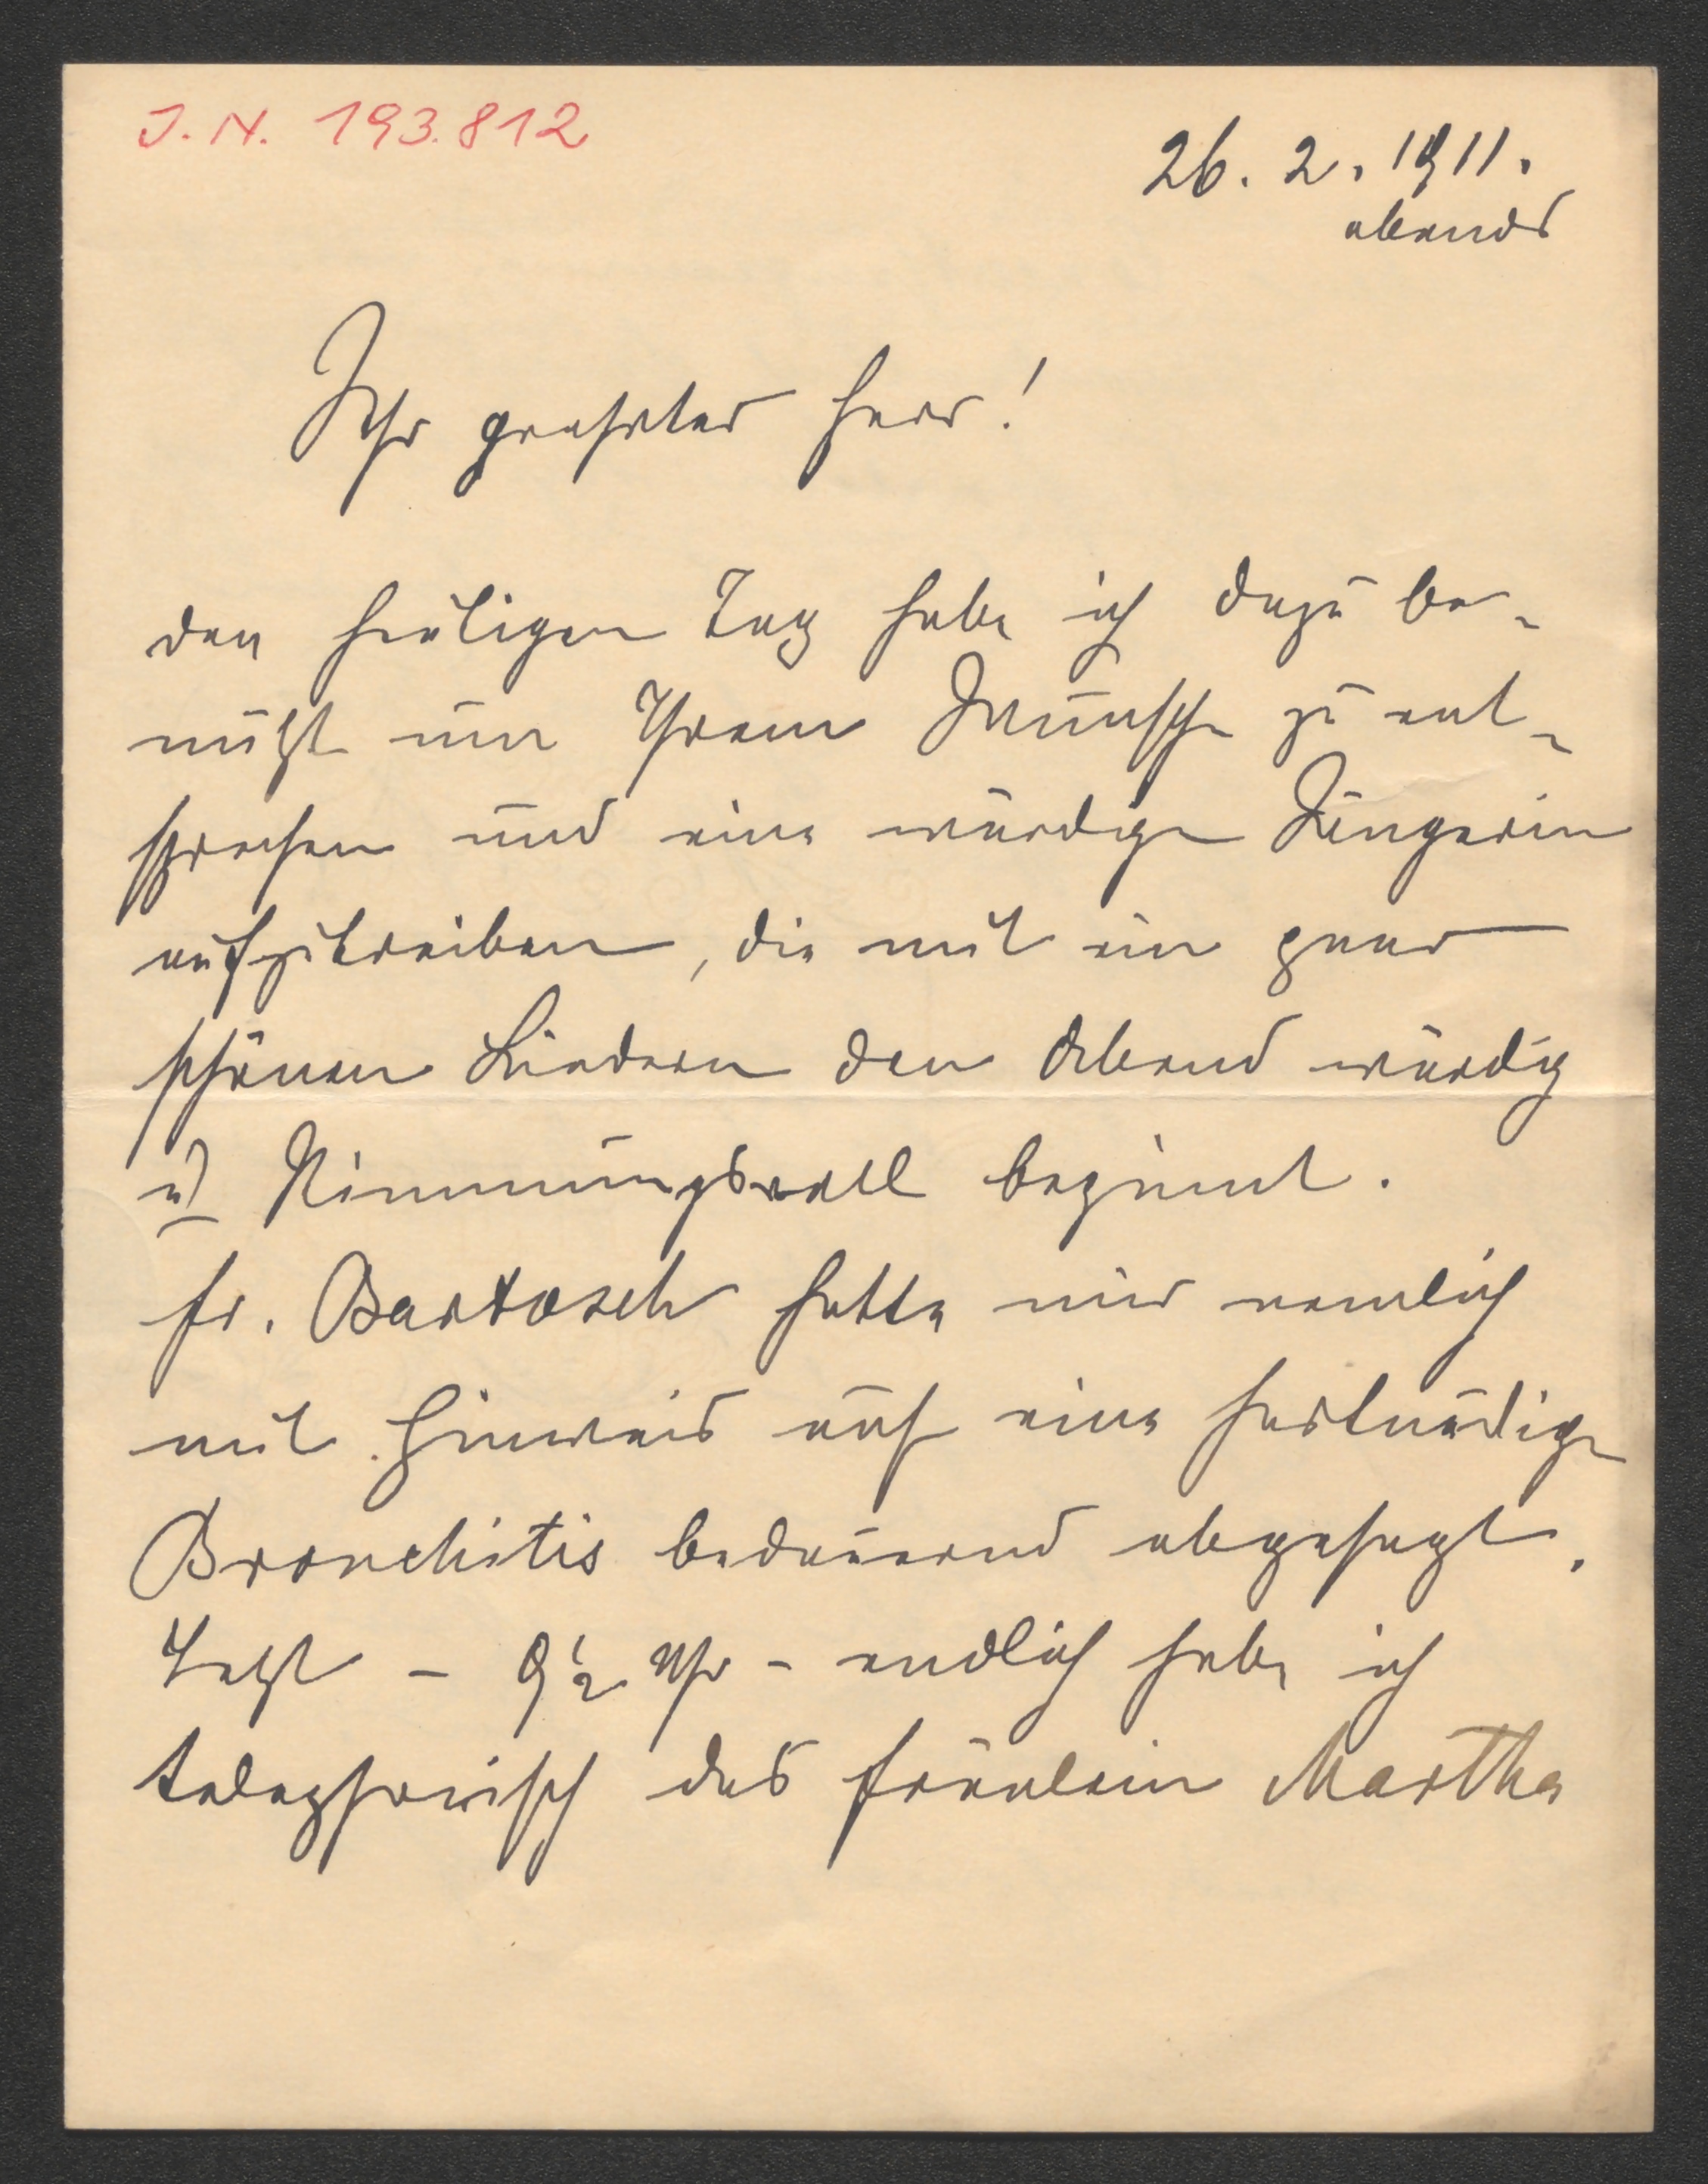 J. N. 193.812
26. 2. 1911.
abends
Sehr geehrter Herr!
den heutigen Tag habe ich dazu be-
nützt um Ihrem Wunsche zu ent-
sprechen und eine würdige Sängerin
aufzutreiben, die mit ein paar
schönen Liedern den Abend würdig
u) stimmungsvoll beginnt.
Fr. Bartosch hatte mir nemlich
mit Hinweis auf eine hartnäckige
Bronchitis bedauernd abgesagt.
Jetzt – 9½ Uhr – endlich habe ich
telephonisch das Fräulein Martha